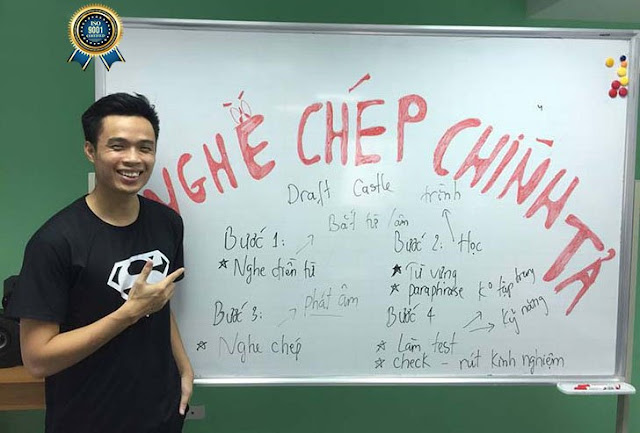 ISO
9001
CERTIFIED
NGHE CHÉP CHÍNH TẢ
Draft Castle trình
Bước 1: Bắt từ /âm
* Nghe điền từ
Bước 2: Học
* Từ vựng
* paraphrase K° tập trung
Bước 3: phát âm
* Nghe chép
Bước 4 Kỹ năng
* Làm test
* check - rút kinh nghiệm